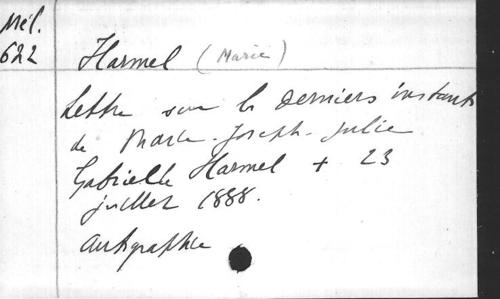 Mél.
622
Harmel (Marie)
Lettre sur les derniers instants
de Marie-Joseph-Julie
Gabrielle Harmel + 23
juillet 1888.
Autographie